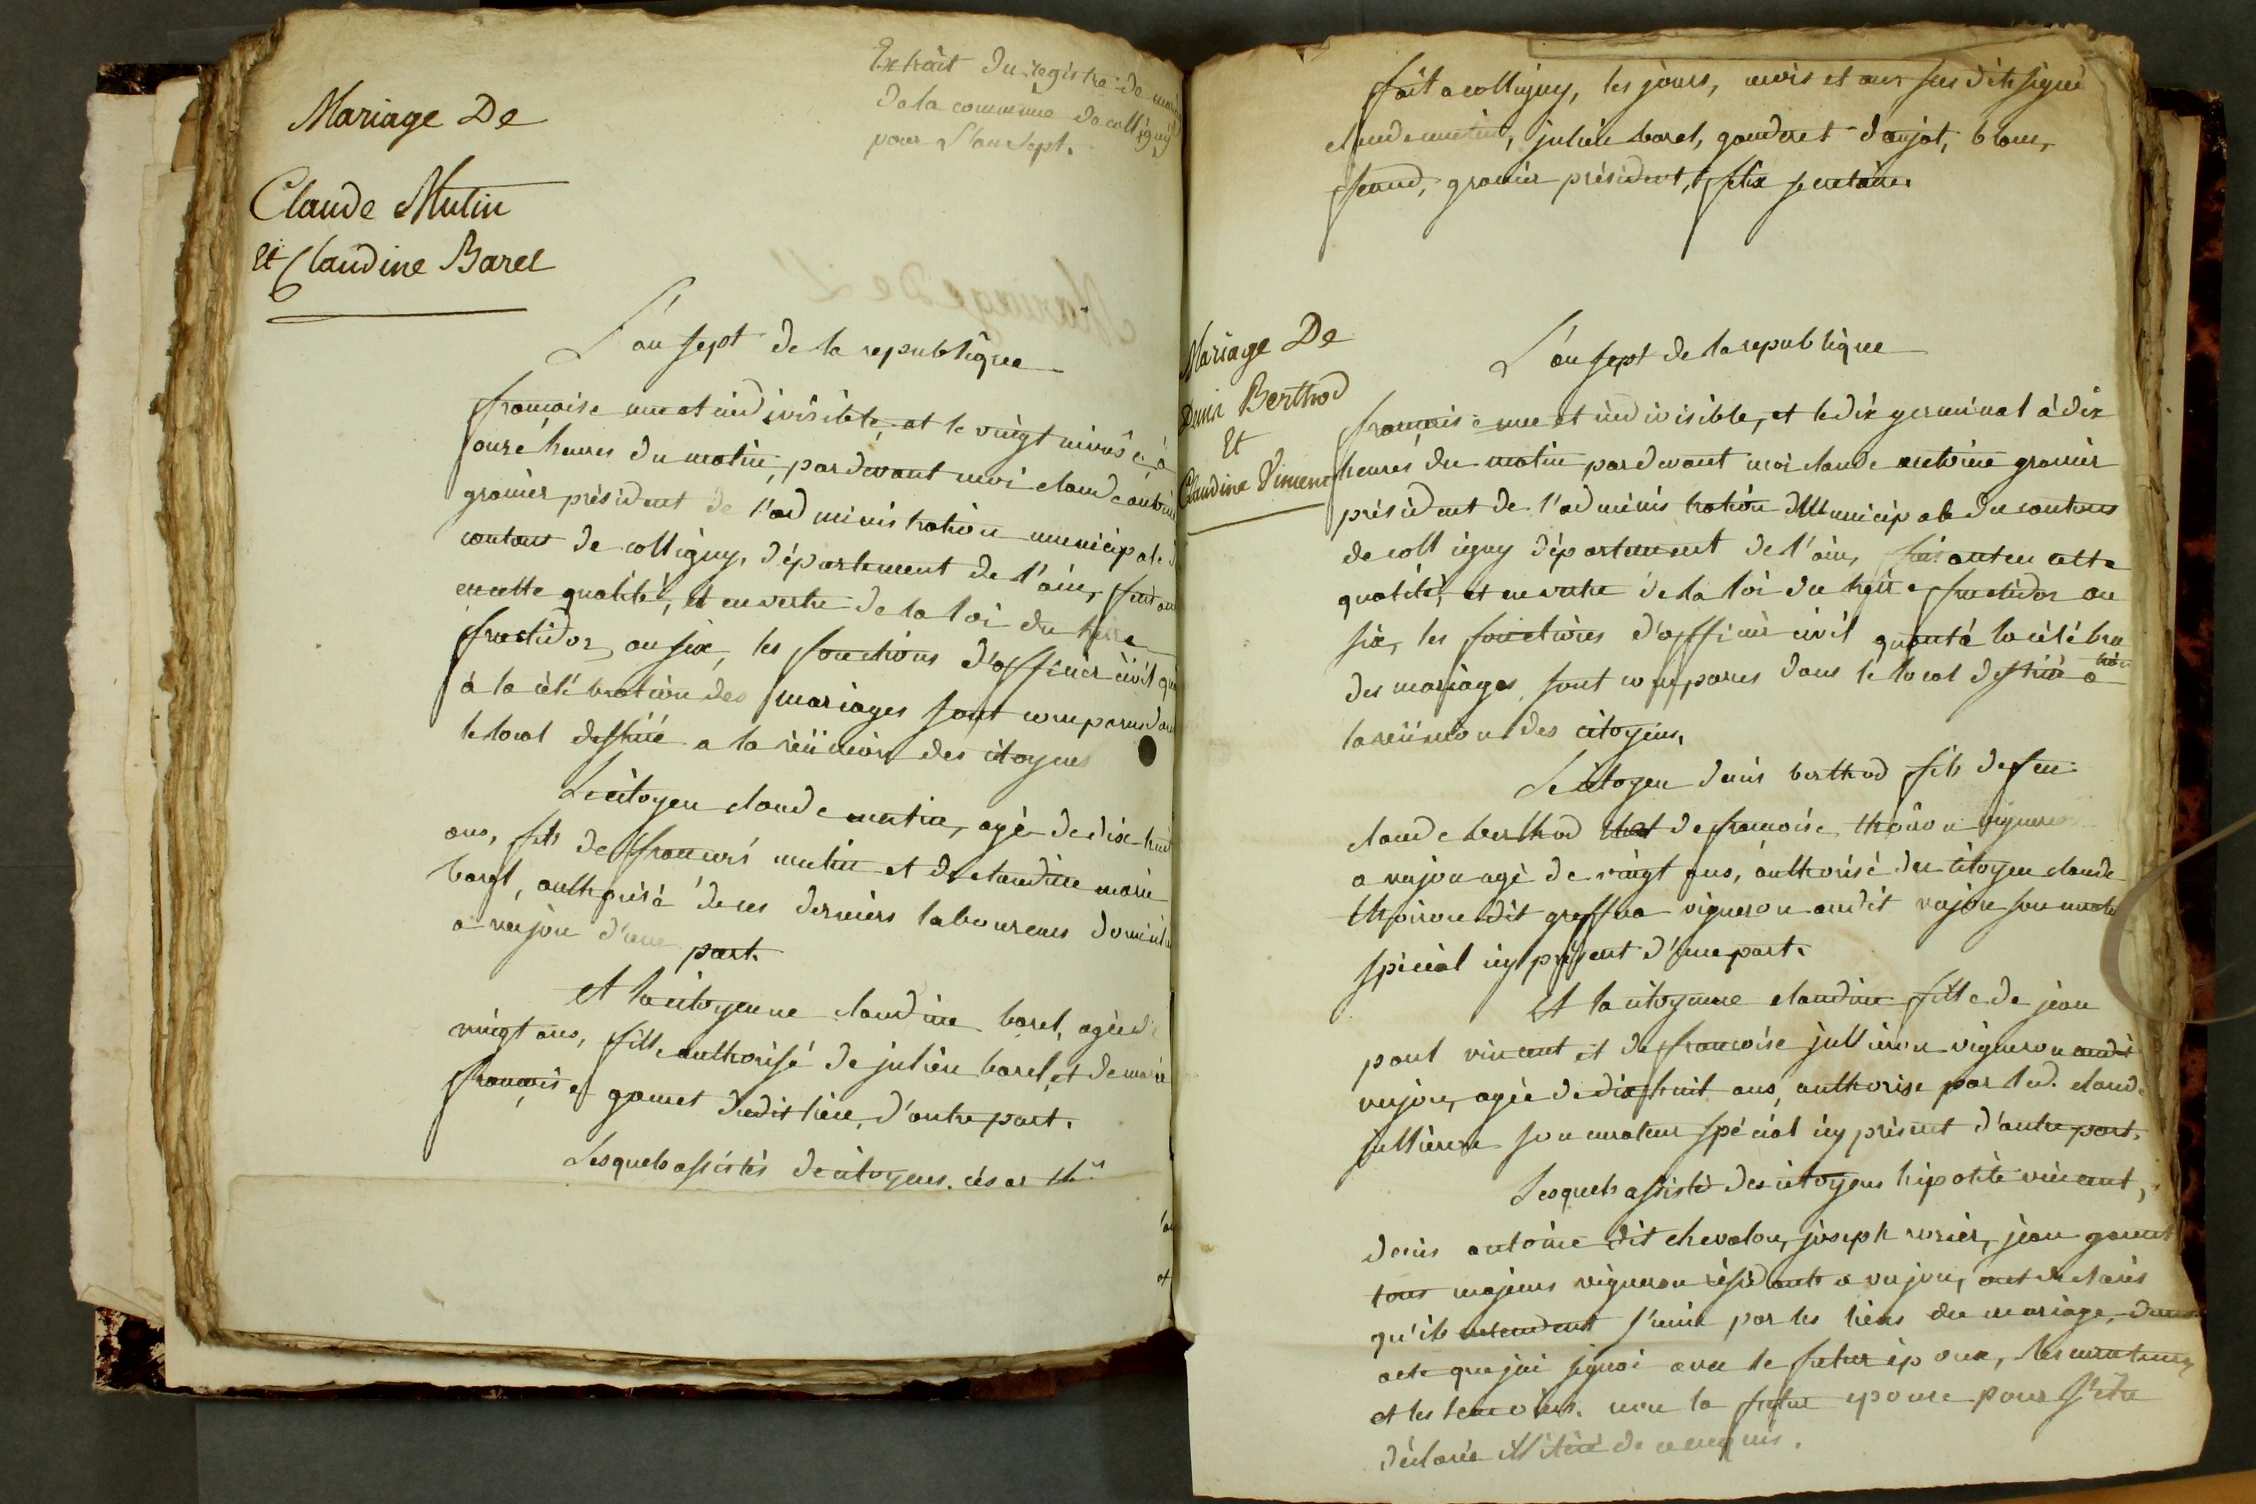 Extrait du registre de
de la commune de colligny
pour L'an sept.
Mariage De
Claude Mutin
Et Claudine Barel
L'an sept de la republique
françoise une et indivisible, et le vingt nivôse, à
onze heures du matin, pardevant moi claude antoine
granier président de l'administration municipale d
contons de colligny, département de l'ain,
en cette qualité, et en vertu de la loi du treize
fructidor an six, les fonctions d'officier civil
à la célébration des mariages sont comparus dan
le local destiné a la réünion des citoyens
Le citoyen claude mutin, agé de dix huit
ans, fils de mutin et de claudine marie
barel, authorisé de ces derniers laboureurs
a d'une part.
et la citoyenne claudine barel, agée d
vingt ans, fille authorisé de julien barel, et de marie
françoise gamet dudit lieu, d'autre part.
Lesquels assistés de citoyens
fait a colligny, les jours, mois et an sus dits signé
claude mutin, julien barel, daujat,
granier président, felix secrétaire
Mariage De
Denis Berthod
Et
Claudine Vincent
L'an sept de la republique
française une et indivisible, et le dix germinal à dix
heures du matin pardevant moi claude antoine granier
président de l'administration Municipale du contons
de colligny département de l'ain, en cette
qualité, et en vertu de la loi du treize fructidor an
six, les fonctions d'officier civil quant à la célébra
tion
des mariages sont comparus dans le local destiné a
la réünion des citoyens,
Le citoyen denis berthod fils de feu
claude berthod et de francoise thoiron vigneron
a agé de vingt ans, authorisé du citoyen claude
thoiron dit vigneron audit son
spécial icy présent d'une part.
Et la citoyenne claudine fille de jean
paul vincent et de francoise jullieron vigneron audit
agée de dix huit ans, authorise par le d. claude
jullieron son curateur spécial icy présent d'autre part.
Lesquels assisté des citoyens hipolite vincent,
denis antoine dit chevalon, joseph jean
tous majeurs vigneron résidants a ont declarés
qu'ils entendent s'unir par les liens du mariage,
acte que jai signai avec le futur époux, les curateurs
et les temoins. non la future epouse pour s'etre
déclarée de ce enquis.